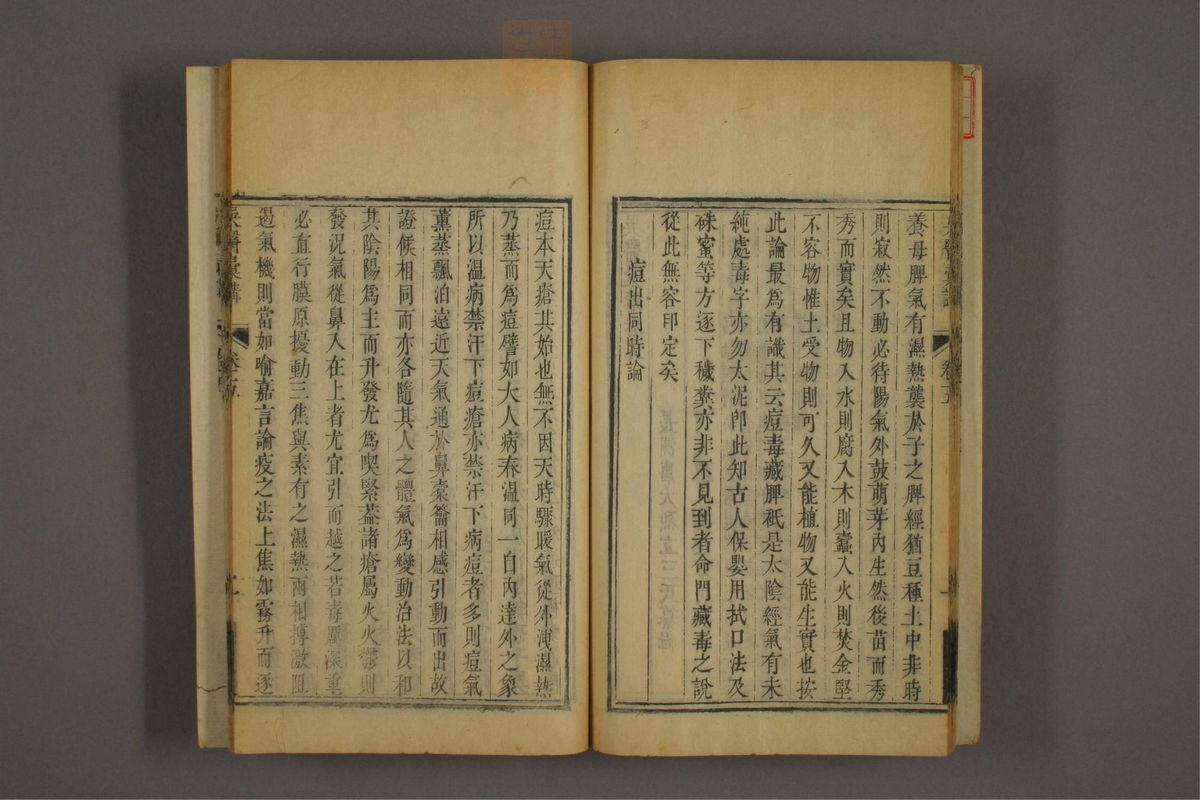 養母脾氣有濕熱襲於子之脾經猶豆種土中非時
則寂然不動必待陽氣外鼓萌芽內生然後苗而秀
秀而實矣且物入水則腐入木則蠧入火則焚金堅
不容物惟土受物則可久又能植物又能生實也按
此論最爲有識其云痘毒藏脾秪是太陰經氣有未
純處毒字亦勿太泥卽此知古人保嬰用拭口法及
硃蜜等方逐下穢糞亦非不見到者命門藏毒之說
從此無容印定矣
痘出同時論
痘本天瘡其始也無不因天時驟暖氣從外洩濕熱
乃蒸而爲痘譬如大人病春溫同一自內達外之象
所以溫病禁汗下痘瘡亦禁汗下病痘者多則痘氣
薰蒸飄泊遠近天氣通於鼻橐籥相感引動而出故
證候相同而亦各隨其人之體氣爲變動治法以和
其陰陽爲主而升發尤爲喫緊葢諸瘡屬火火鬱則
發況氣從鼻入在上者尤宜引而越之若毒深重
必直行膜原擾動三焦與素有之濕熱兩相搏激阻
遏氣機則當如喻嘉言論疫之法上焦如霧升而逐
吳醫彙講
卷五